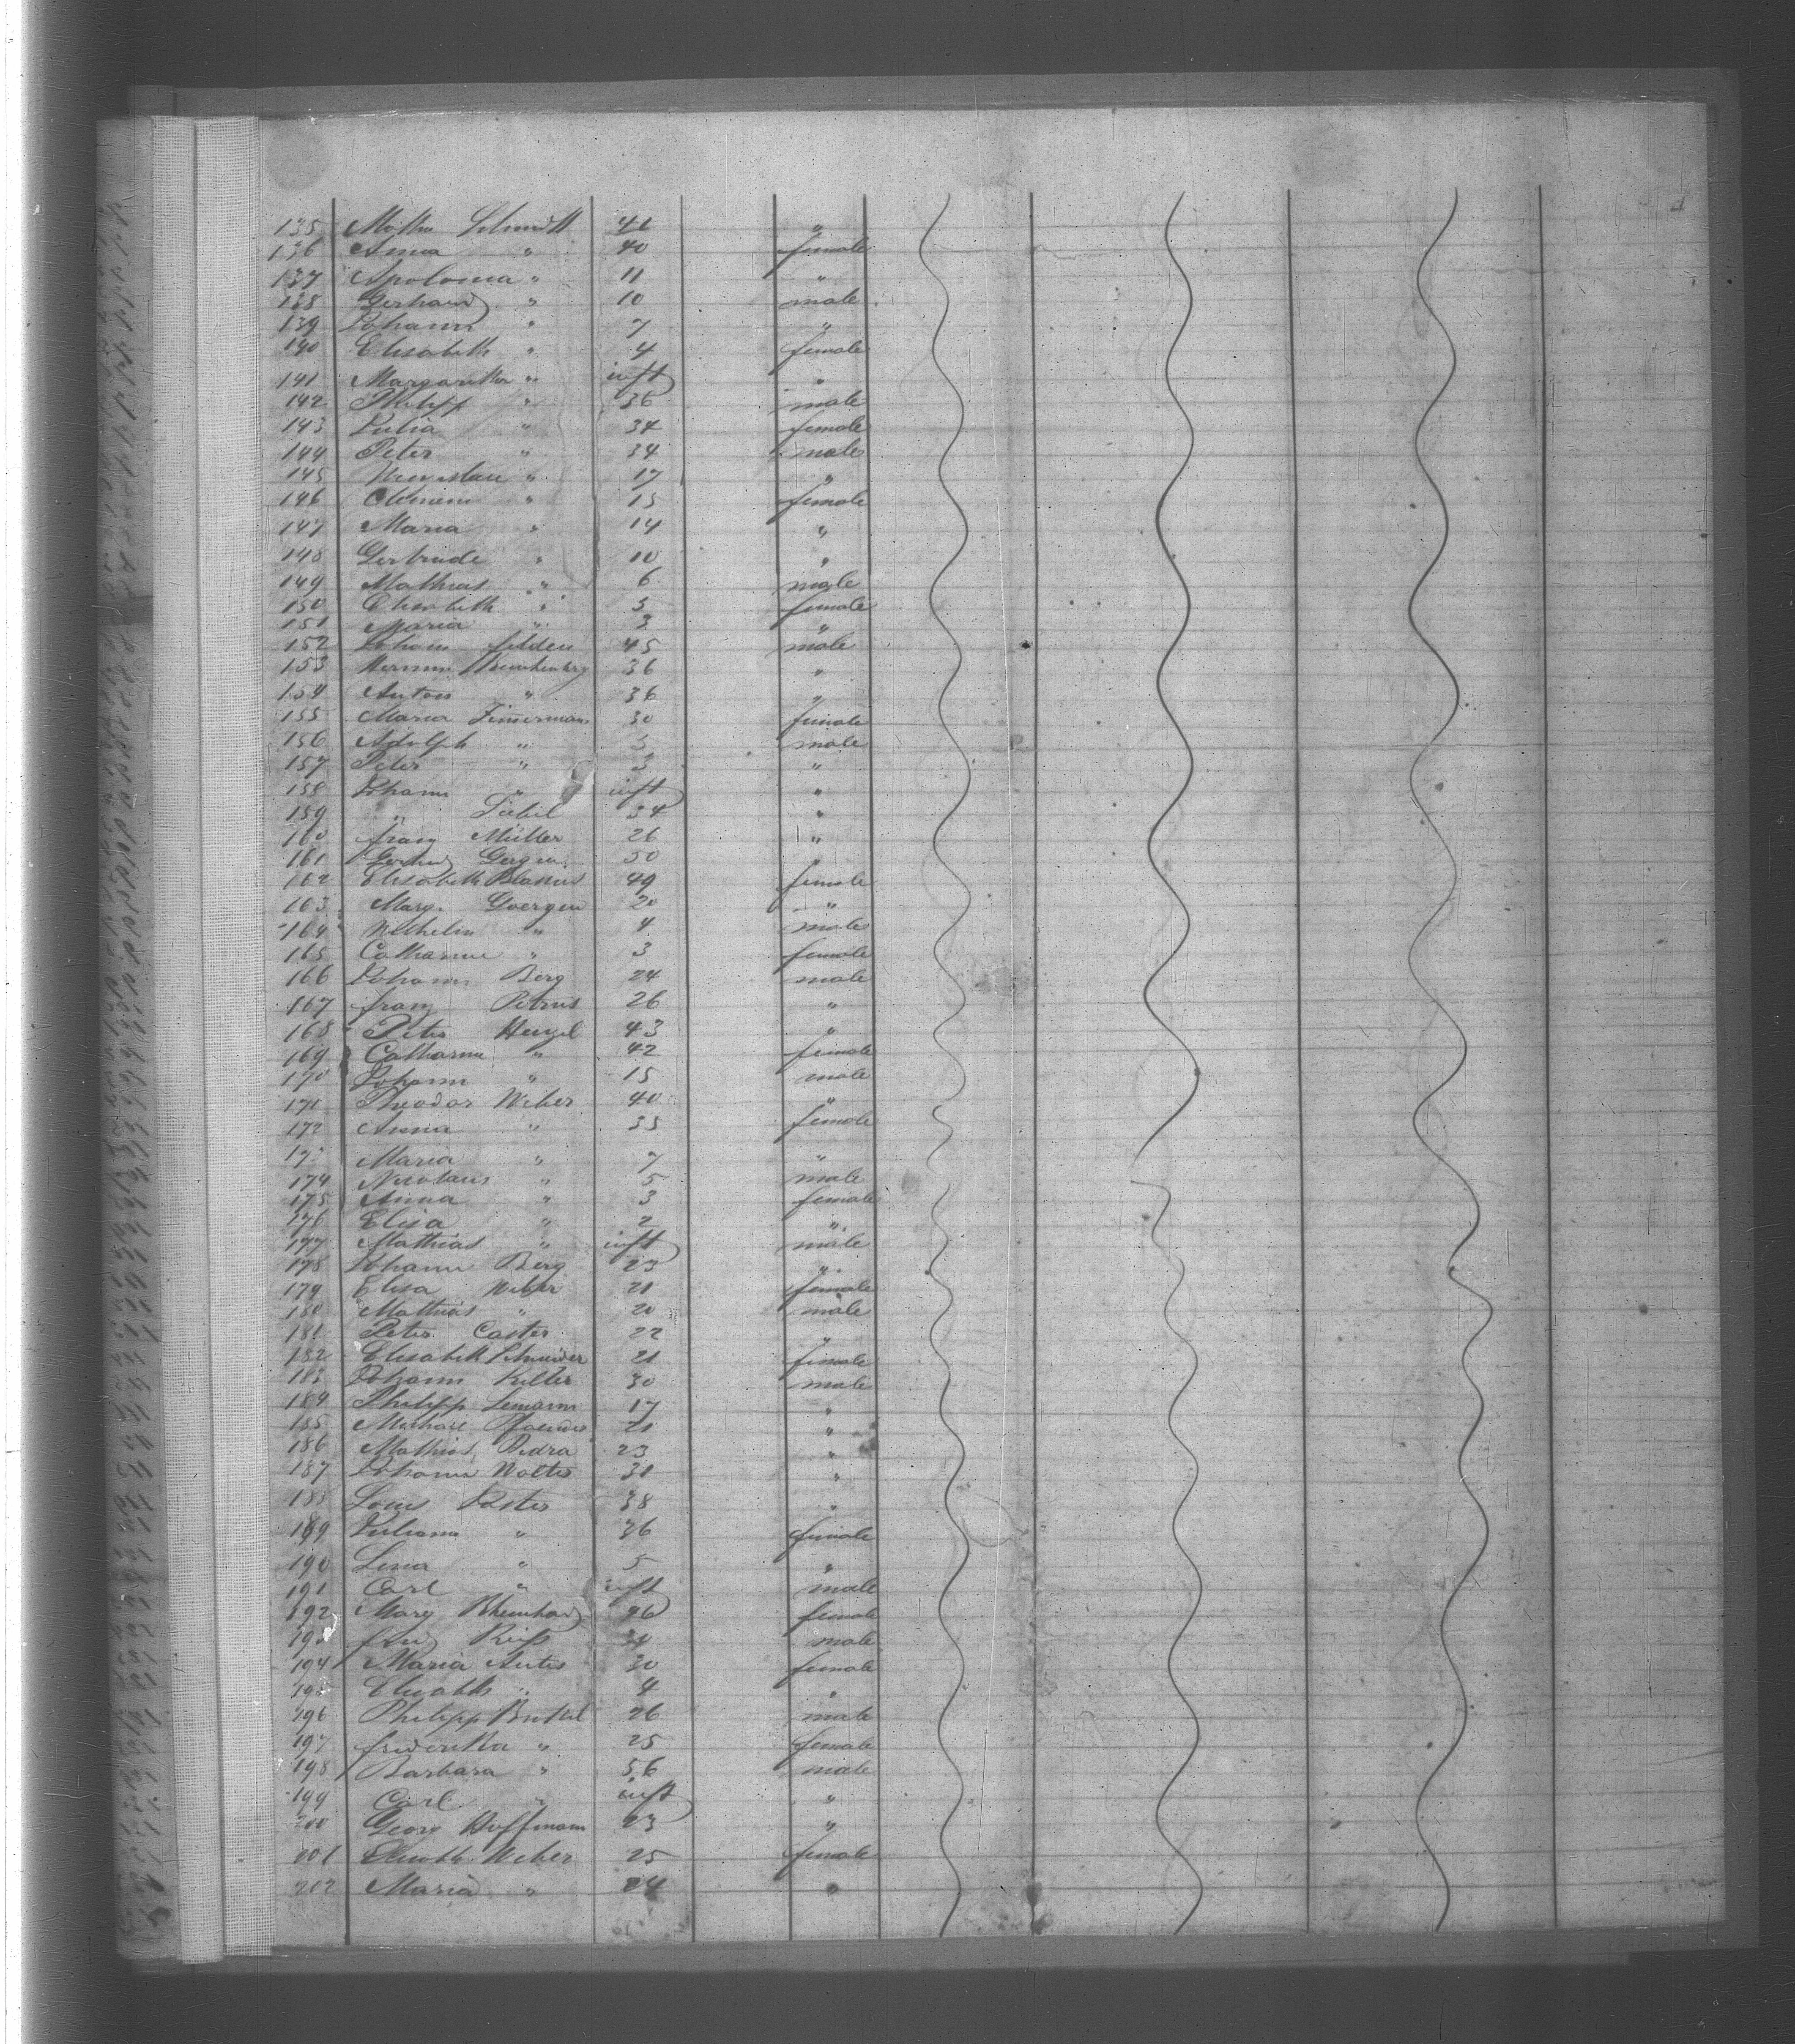 135 Mathu Schmidt 41 "
136 Anna " 40 female
137 Apolonia " 11 "
138 Gerhard " 10 male
139 Johann " 7 "
140 Elisabeth " 4 female
141 Margaretha " inft "
142 Philipp " 36 male
143 Julia " 34 female
144 Peter " 34 male
145 " 17 "
146 " 15 female
147 Maria " 14 "
148 Gertrude " 10 "
149 Mathias " 6 male
150 Elisabeth " 3 female
151 Maria " 3 "
152 Johann felden 45 male
153 Herman 36 "
154 Anton " 36 "
155 Maria Zimerman 30 female
156 Adolph " 5 male
157 Peter " 3 "
158 Johann " inft "
159 " Siebil 34 "
160 franz Müller 26 "
161 Gerhard Gergen 50 "
162 Elisabeth Blasius 49 female
163 Marg. Goergen 20 "
164 Wilhelm " 4 male
165 Catharine " 3 female
166 Johann Berg 24 male
167 franz Petrus 26 "
168 Peter Hengel 43 "
169 Catharine " 42 female
170 Johann " 15 male
171 Theodor Weber 40 "
172 Anna " 35 female
173 Maria " 7 "
174 Nicolaus " 5 male
175 Anna " 3 female
176 Elisa " 2 "
177 Mathias " inft male
178 Johann Berg 23 "
179 Elisa Weber 21 female
180 Mathias " 20 male
181 Peter Caster 22 "
182 Elisabeth Schneider 21 female
183 Johann Keller 30 male
184 Philipp Lemann 17 "
185 Michael 21 "
186 Mathias Pedra 23 "
187 Johann Wolter 31 "
188 Louis Koster 38 "
189 Juliana " 36 female
190 Lena " 5 "
191 Carl " inft male
192 Mary Rheinhard 26 female
193 fried Reiss 31 male
194 Maria Antes 30 female
195 Elisabeth " 4 "
196 Philipp 26 male
197 friderika " 25 female
198 Barbara " 56 male
199 Carl " inft "
200 Georg Hoffmann 23 "
201 Elisabth Weber 25 female
202 Maria " 24 "